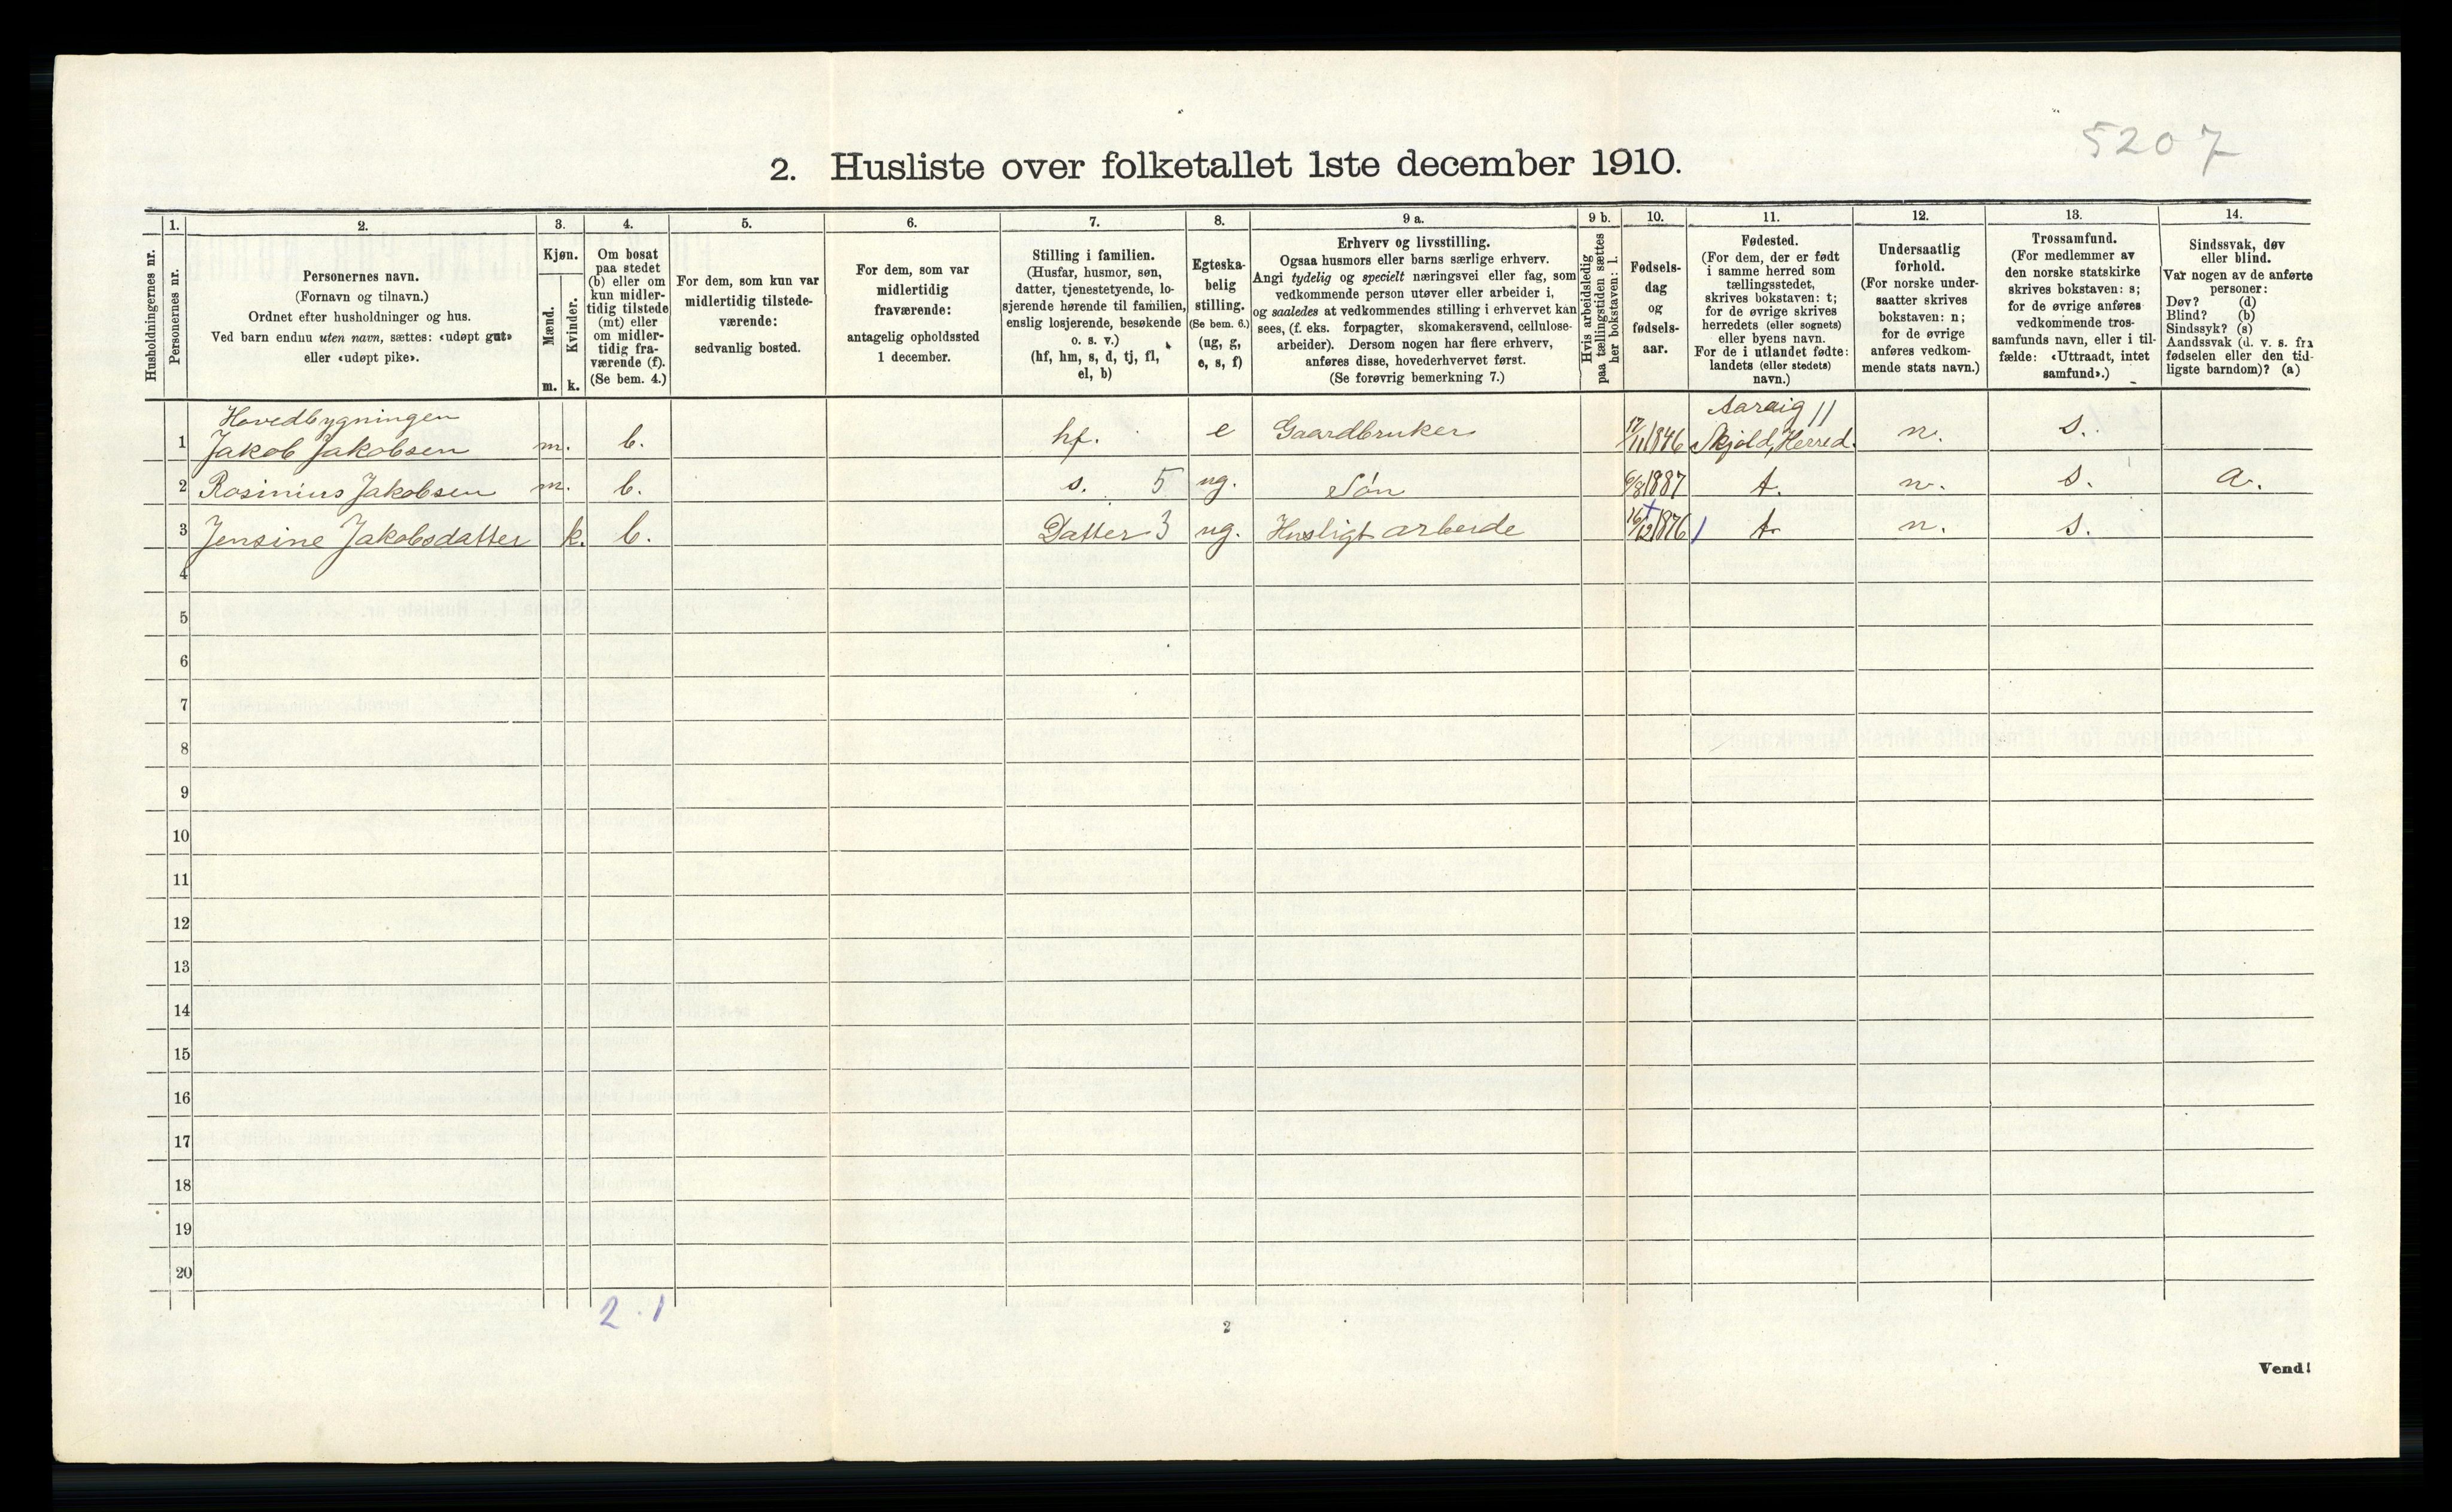 5207
2. Husliste over folketallet 1ste december 1910.
Husholdningernes nr.
1.
Personernes nr.
2.
Personernes navn.
(Fornavn og tilnavn.)
Ordnet efter husholdninger og hus.
Ved barn endnu uten navn, sættes: «udøpt gut»
eller «udøpt pike».
3.
Kjøn.
Mænd.
Kvinder.
m. k.
4.
Om bosat
paa stedet
(b) eller om
kun midler-
tidig tilstede
(mt) eller
om midler-
tidig fra-
værende (f).
(Se bem. 4.)
5.
For dem, som kun var
midlertidig tilstede-
værende:
sedvanlig bosted.
6.
For dem, som var
midlertidig
fraværende:
antagelig opholdssted
1 december.
7.
Stilling i familien.
(Husfar, husmor, søn,
datter, tjenestetyende, lo-
sjerende hørende til familien,
enslig losjerende, besøkende
o. s. v.)
(hf, hm, s, d, tj, fl,
el, b)
8.
Egteska-
belig
stilling.
(Se bem. 6.)
(ug, g,
e, s, f)
9 a.
Erhverv og livsstilling.
Ogsaa husmors eller barns særlige erhverv.
Angi tydelig og specielt næringsvei eller fag, som
vedkommende person utøver eller arbeider i,
og saaledes at vedkommendes stilling i erhvervet kan
sees, (f. eks. forpagter, skomakersvend, cellulose-
arbeider). Dersom nogen har flere erhverv,
anføres disse, hovederhvervet først.
(Se forøvrig bemerkning 7.)
9 b.
Hvis arbeidsledig
paa tællingstiden sættes
her bokstaven: l.
10.
Fødsels-
dag
og
fødsels-
aar.
11.
Fødested.
(For dem, der er født
i samme herred som
tællingsstedet,
skrives bokstaven: t;
for de øvrige skrives
herredets (eller sognets)
eller byens navn.
For de i utlandet fødte:
landets (eller stedets)
navn.)
12.
Undersaatlig
forhold.
(For norske under-
saatter skrives
bokstaven: n;
for de øvrige
anføres vedkom-
mende stats navn.)
13.
Trossamfund.
(For medlemmer av
den norske statskirke
skrives bokstaven: s;
for de øvrige anføres
vedkommende tros-
samfunds navn, eller i til-
fælde: «Uttraadt, intet
samfund».)
14.
Sindssvak, døv
eller blind.
Var nogen av de anførte
personer:
Døv? (d)
Blind? (b)
Sindssyk? (s)
Aandssvak (d. v. s. fra
fødselen eller den tid-
ligste barndom)? (a)
Hovedbygningen
1 Jakob Jakobsen m. b. hf. e Gaardbruker 17/11 1846 Skjold, Herred. n. s.
2 Rosinius Jakobsen m. b. s. 5 ug. Søn 6/8 1887 t. n. s. a.
3 Jensine Jakobsdatter k. b. Datter 3 ug. Husligt arbeide 16/12 1876 t. n. s.
4
5
6
7
8
9
10
11
12
13
14
15
16
17
18
19
20
2 . 1
2
Vend!